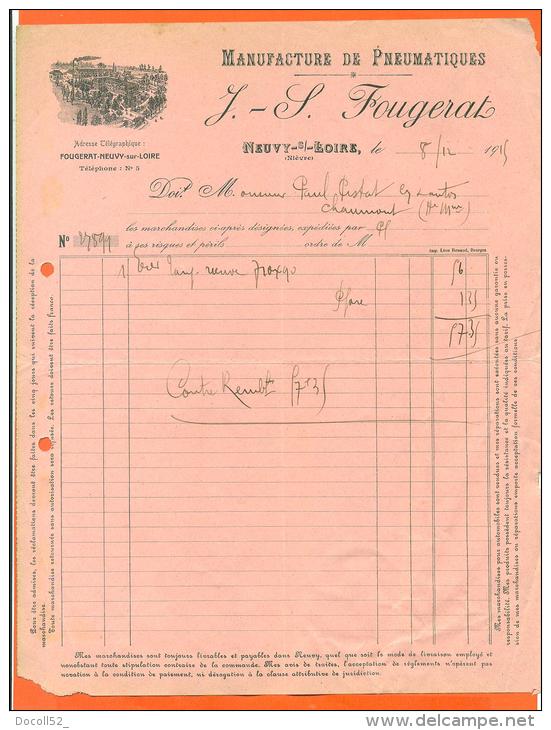 MANUFACTURE DE PNEUMATIQUES
J.-S. Fougerat
Adresse Télégraphique :
FOUGERAT-NEUVY-sur-LOIRE
Téléphone : N° 5
NEUVY-S/-LOIRE, le 8/12 1915
(Nièvre)
Doit M. onsieur Paul Pistat
Chaumont (Hte Mne)
les marchandises ci-après désignées, expédiées par
N° 27599 à ses risques et périls ordre de M
Imp. Léon Renaud, Bourges
1 neuve 710x90 56
Port 1 35
57 35
Contre Rembt 57 35
Pour être admises, les réclamations devront être faites dans les cinq jours qui suivent la réception de la
marchandise.
Toute marchandise retournée sans autorisation sera refusée. Les retours doivent être faits franco.
Mes marchandises pour automobiles sont vendues et mes réparations sont exécutées sans aucune garantie ou
responsabilité. Mes produits possèdent toujours la résistance et la qualité indiquées au tarif. La prise en posses-
sion de mes marchandises ou réparations emporte acceptation formelle de ces conditions.
Mes marchandises sont toujours livrables et payables dans Neuvy, quel que soit le mode de livraison employé et
nonobstant toute stipulation contraire de la commande. Mes avis de traites, l'acceptation de règlements n'opèrent pas
novation à la condition de paiement, ni dérogation à la clause attributive de juridiction.
Docoll52_
www.delcampe.net